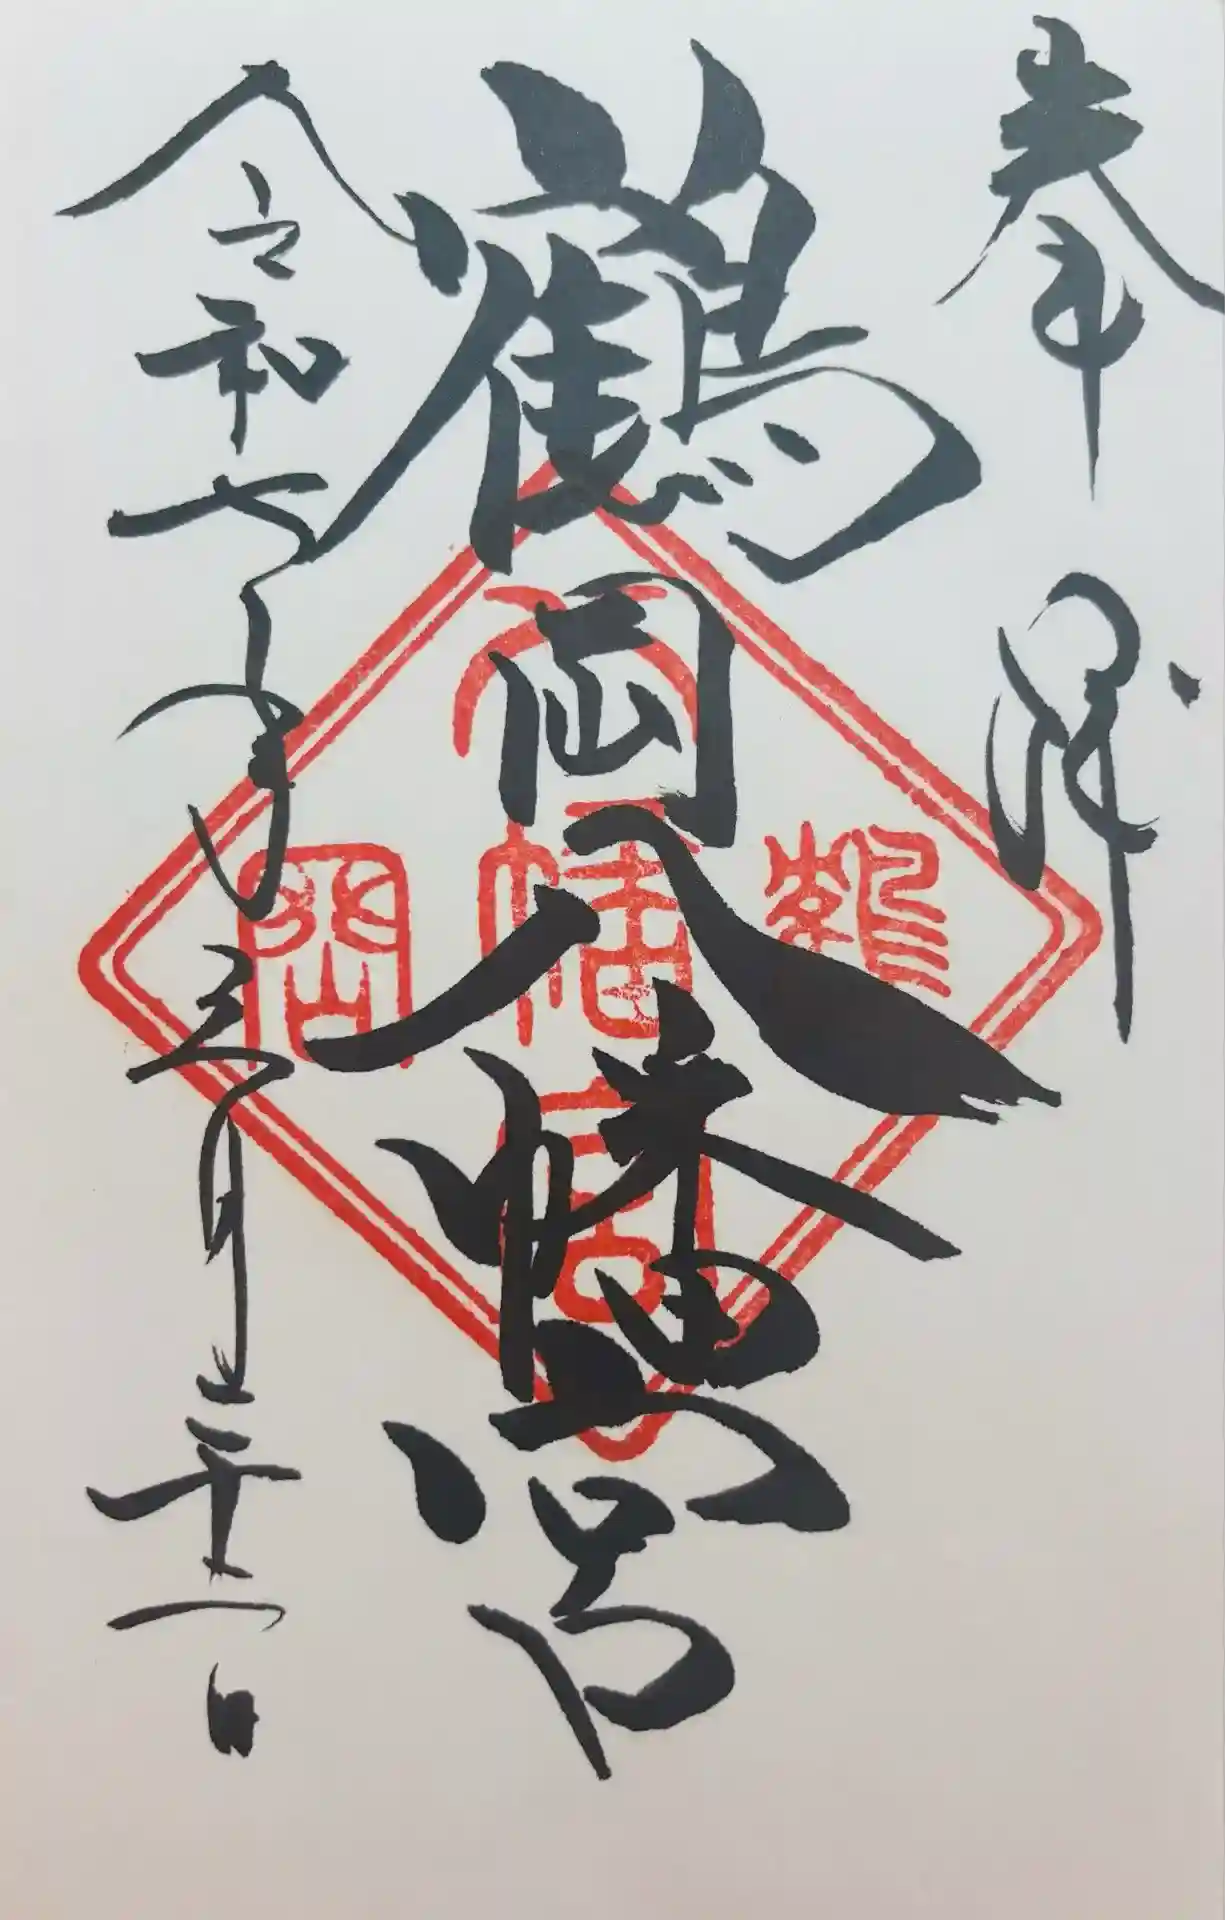 奉拝
鶴岡八幡宮
令和七年三月二十一日
鶴岡八幡宮